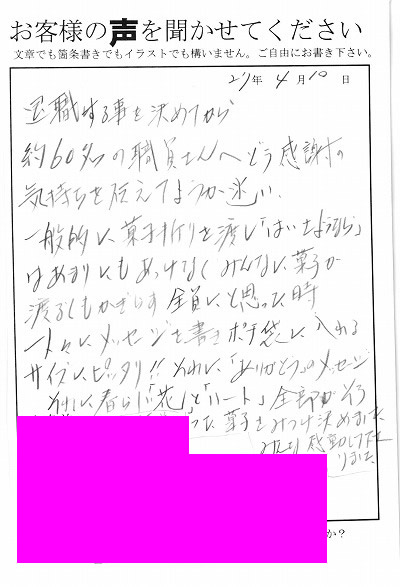 お客様の声を聞かせてください
文章でも箇条書きでもイラストでも構いません。ご自由にお書き下さい。
27年 4月10日
退職する事を決めてから
約60名の職員さんへどう感謝の
気持ちを伝えてようか迷い、
一般的に、菓子折りを渡し「はいさようなら」
はあまりにもあっけなくみんなに菓子が
渡るともかぎらず 全員に、と思った時
一人々に、メッセージを書きポチ袋に入れる
サイズにピッタリ!! それに、「ありがとう」のメッセージ
それに、春らしい「花」と「ハート」全部がそろ
った、菓子をみつけ決めました
みんな感動してた
りました
か?